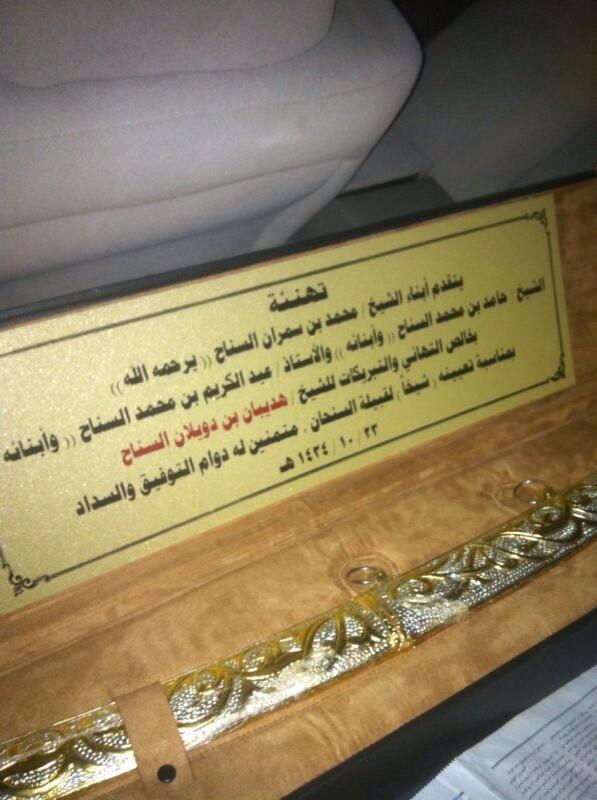 تهنئة
يتقدم أبناء الشيخ / محمد بن سمران السناح (( يرحمه الله ))
الشيخ / حامد بن محمد السناح (( وأبنائه )) والأستاذ / عبد الكريم بن محمد السناح (( وأبنائه
بخالص التهاني والتبريكات للشيخ / هديبان بن دويلان السناح
بمناسبة تعيينه ( شيخاً ) لقبيلة السنحان . متمنين له دوام التوفيق والسداد
٢٣ / ١٠ / ١٤٣٤ هـ